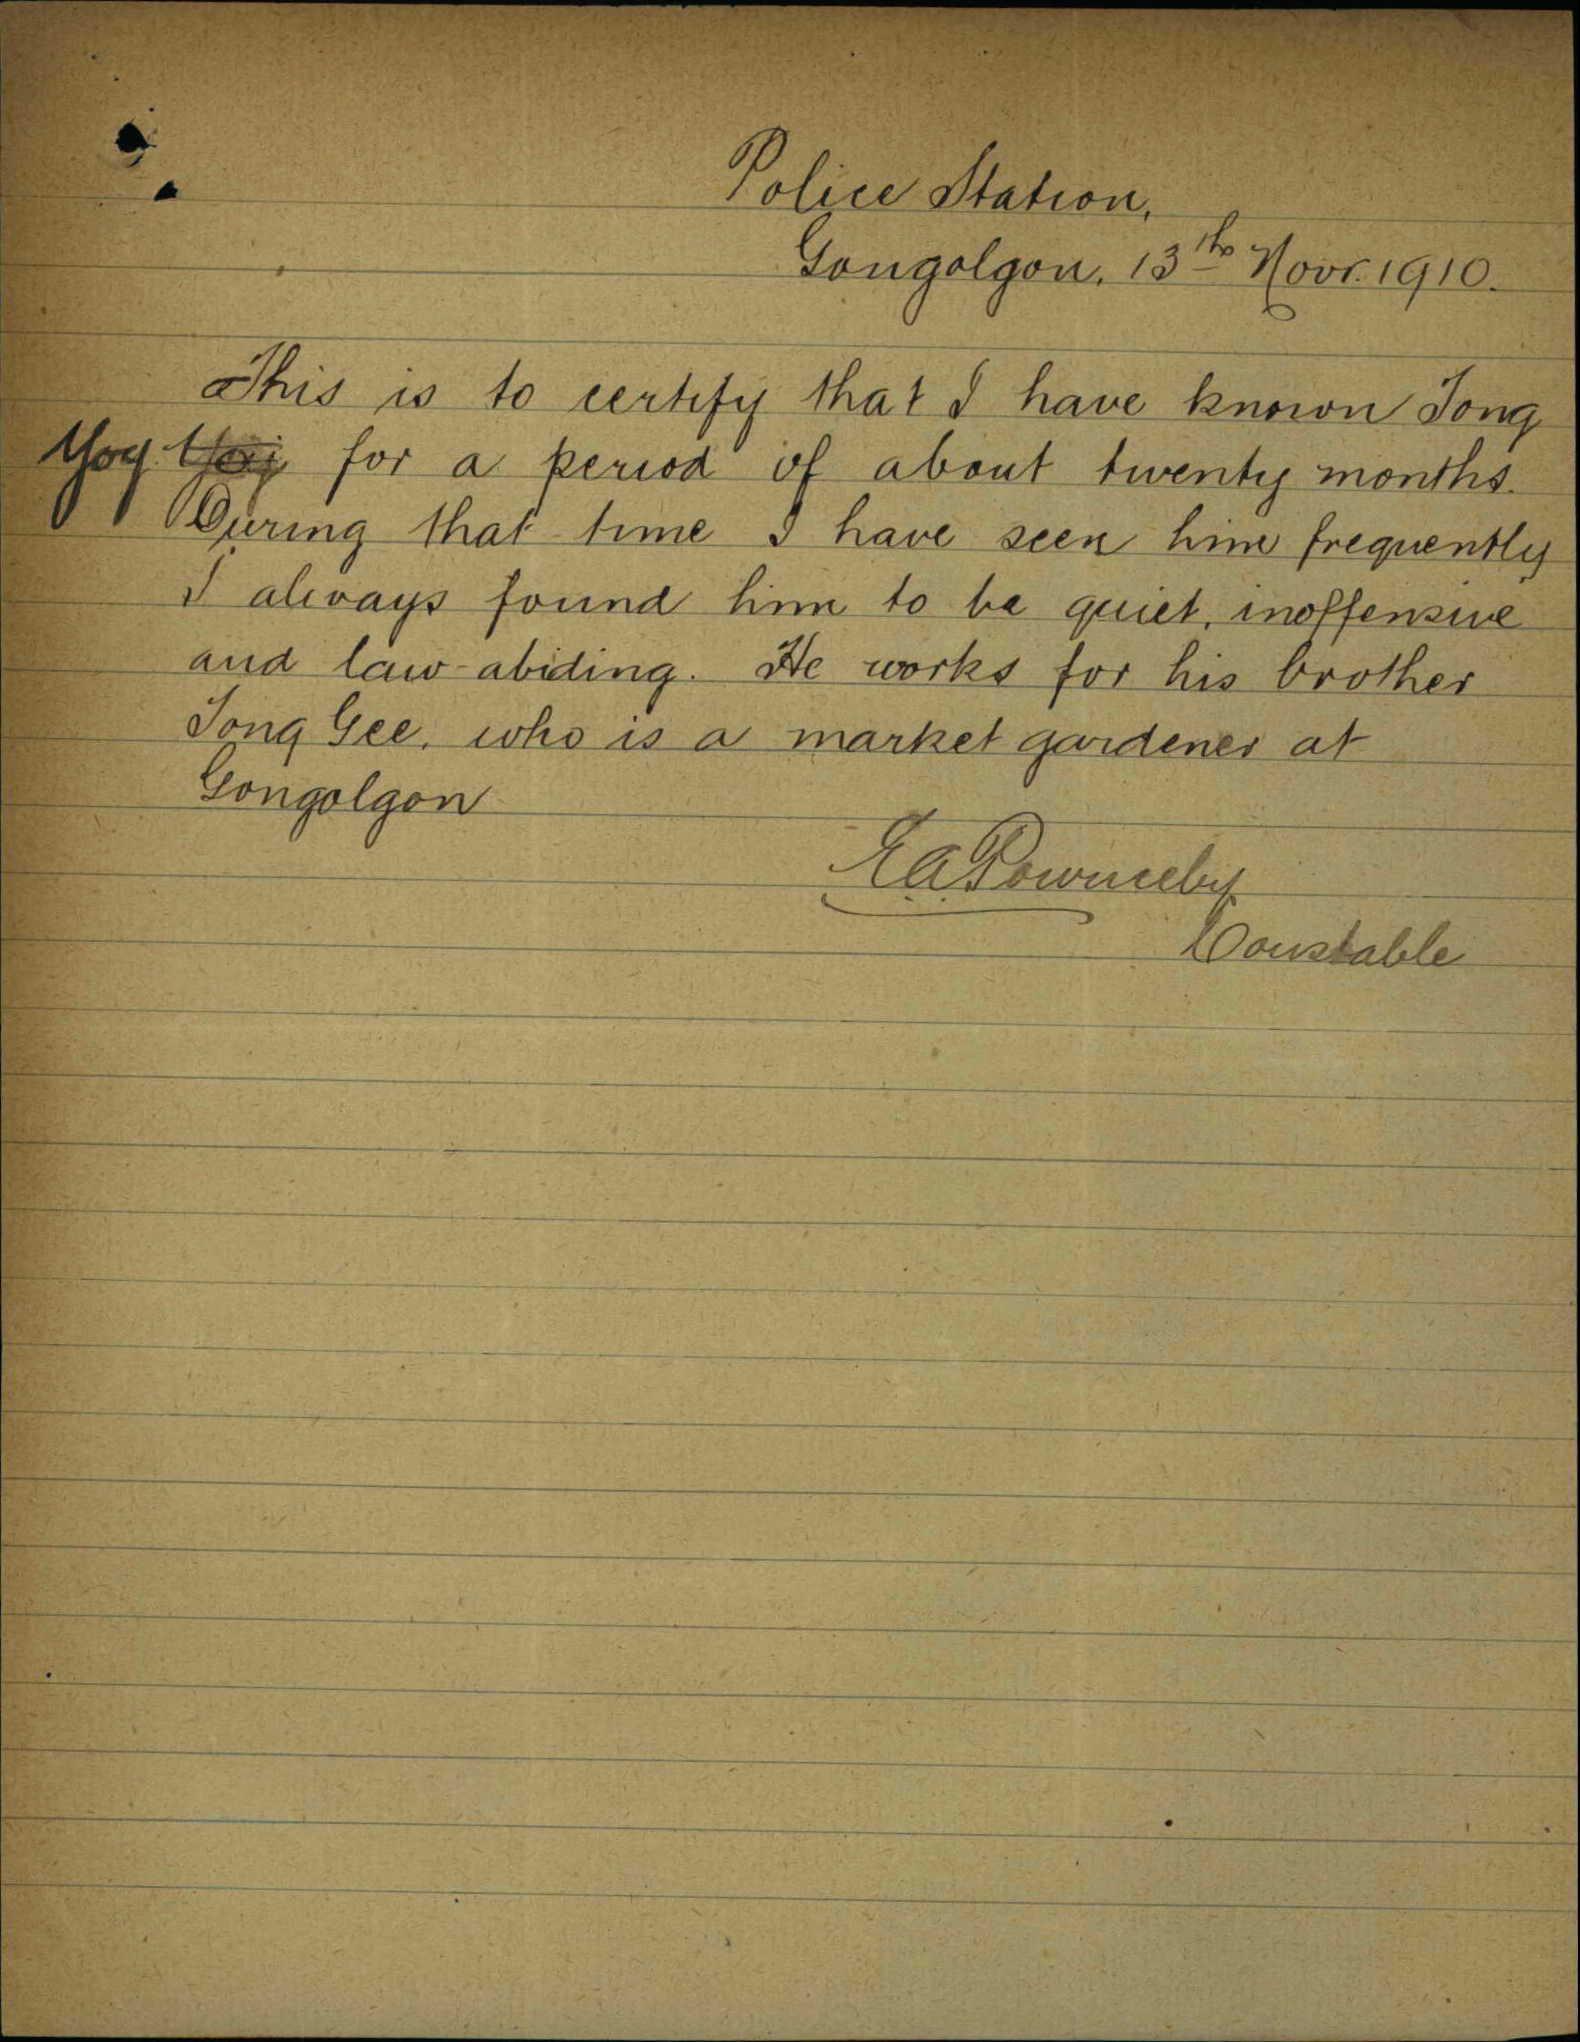 Police Station,
Gongolgon, 13th Novr. 1910.
This is to certify that I have known Tong
Yoy for a period of about twenty months.
During that time I have seen him frequently
I always found him to be quiet, inoffensive
and law-abiding. He works for his brother
Tong Gee, who is a market gardener at
Gongolgon
E A Pownceby
Constable